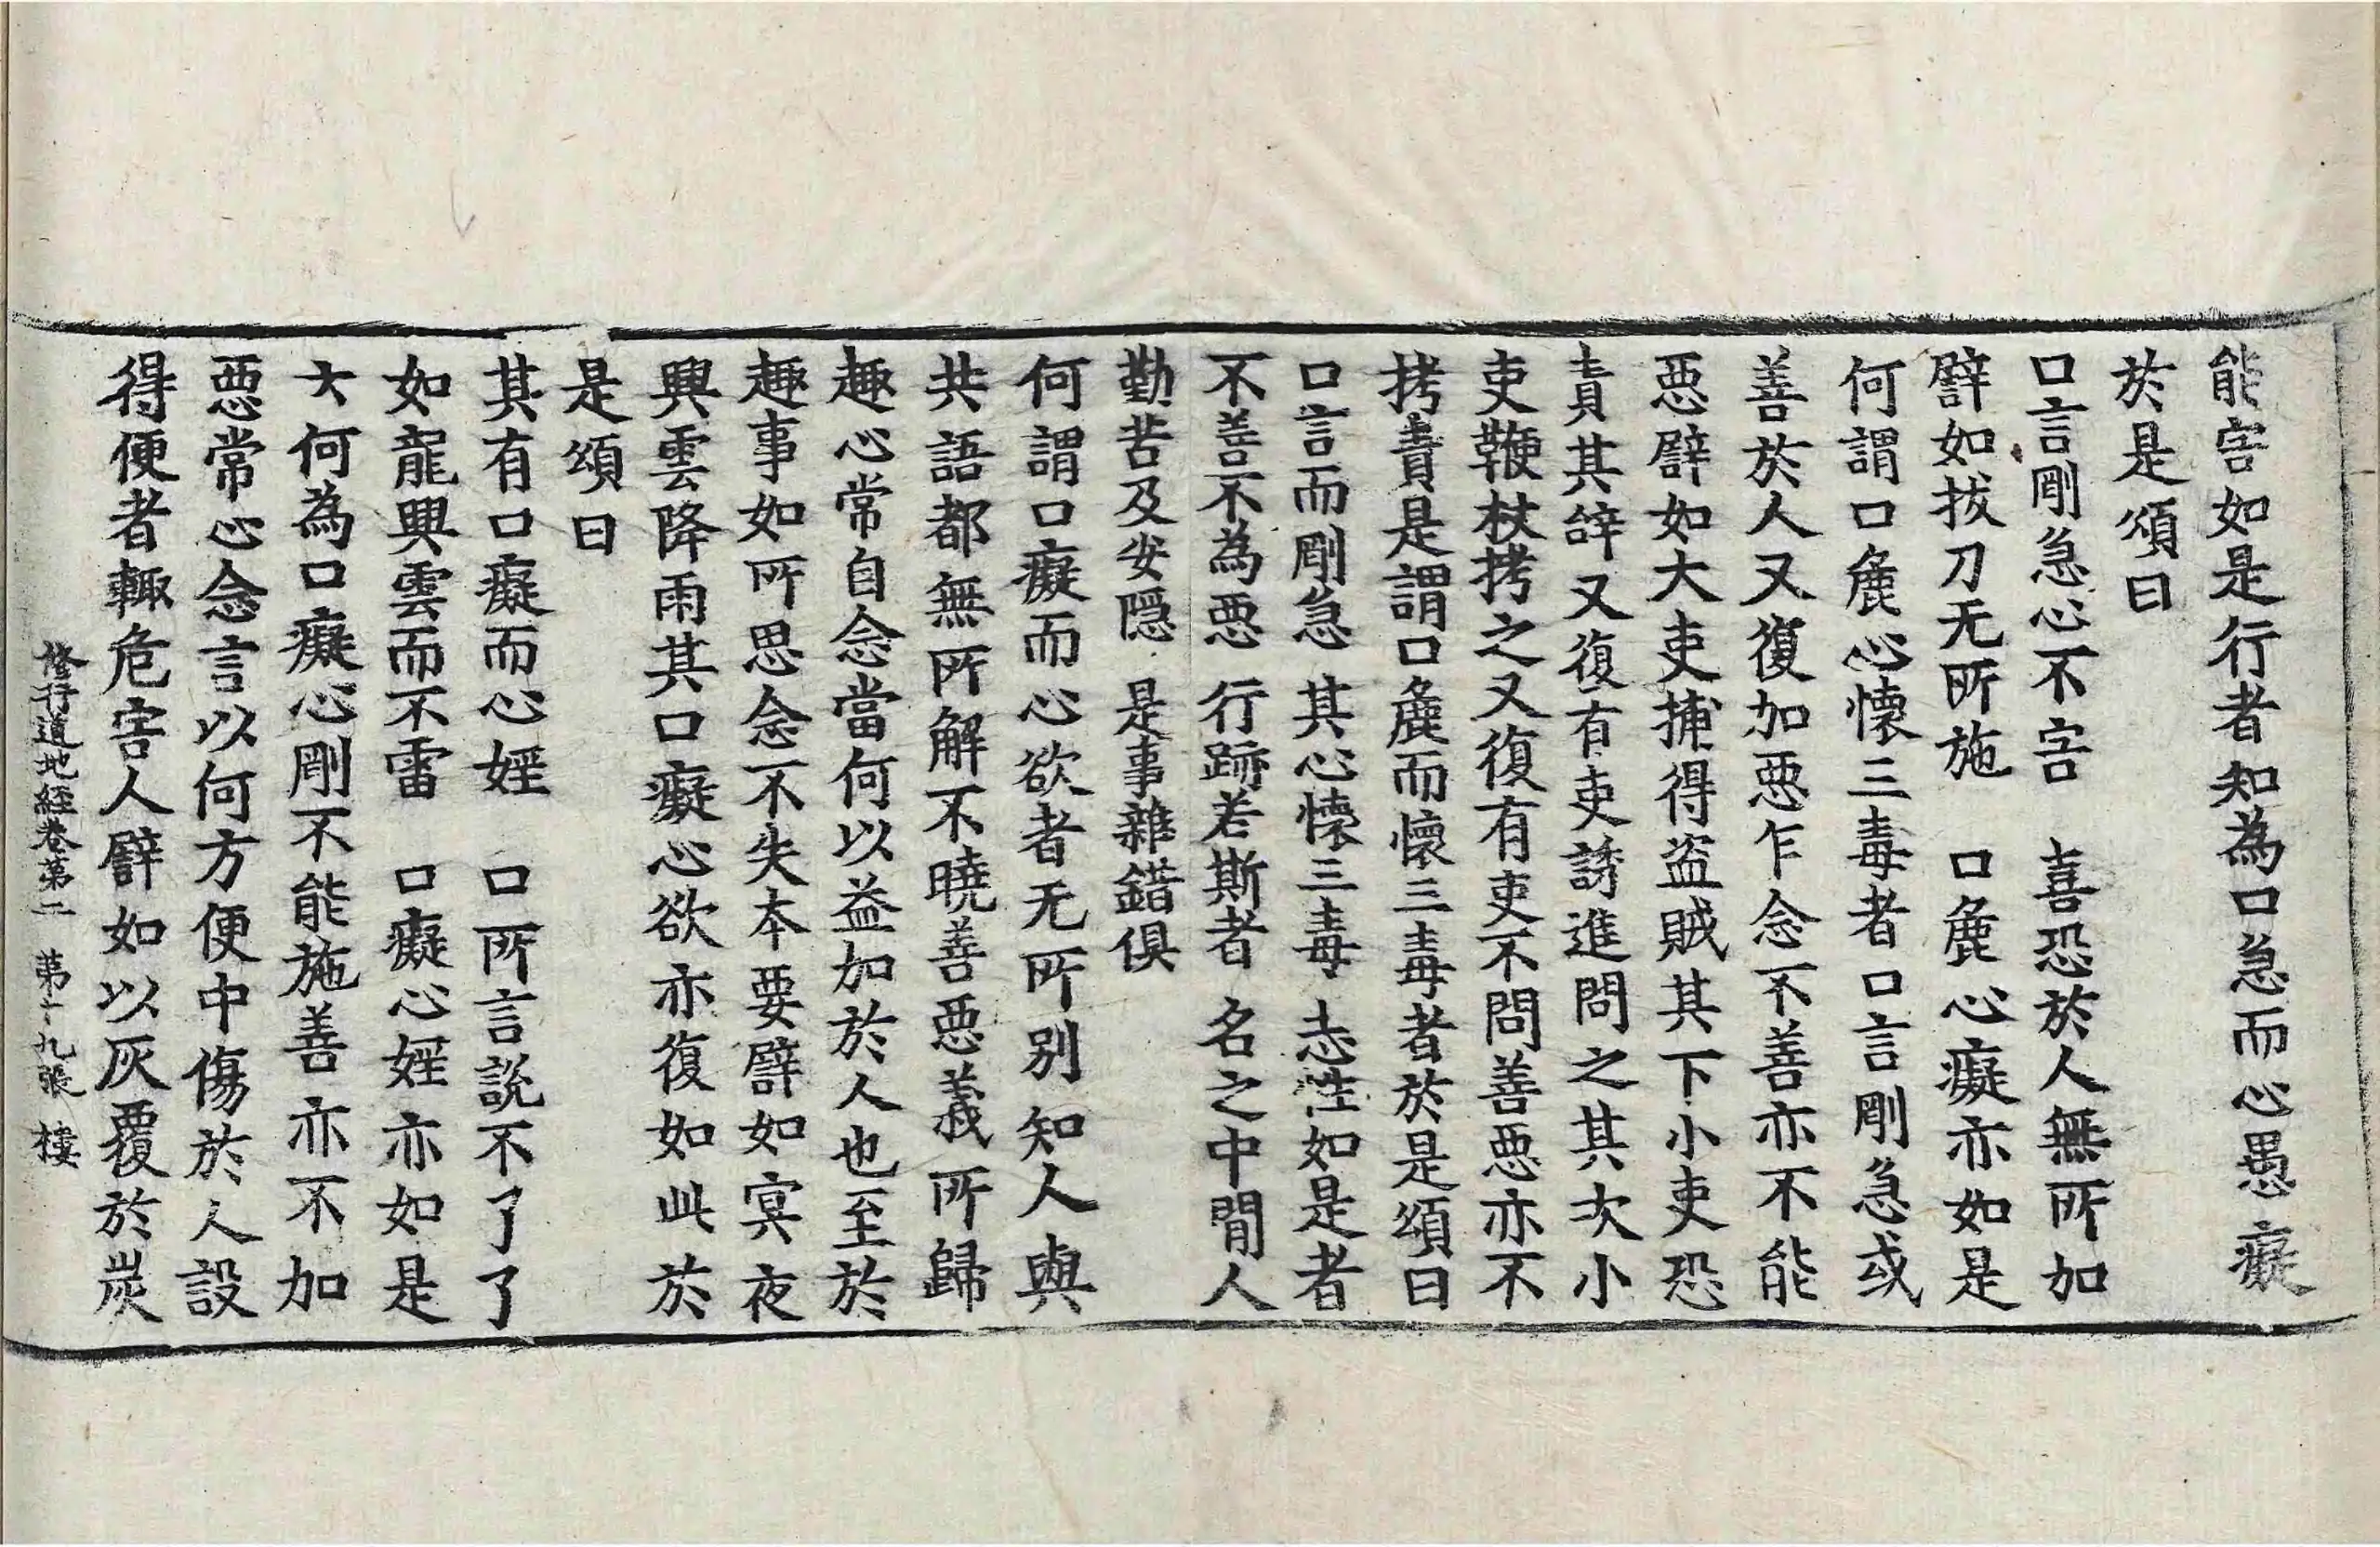 能害如是行者知為口急而心愚癡
於是頌曰
口言剛急心不害　喜恐於人無所加
譬如拔刀无所施　口麁心癡亦如是
何謂口麁心懷三毒者口言剛急或
善於人又復加惡乍念不善亦不能
惡譬如大吏捕得盜賊其下小吏恐
責其辞又復有吏誘進問之其次小
吏鞭杖拷之又復有吏不問善惡亦不
拷責是謂口麁而懷三毒者於是頌曰
口言而剛急　其心懷三毒　志性如是者
不善不為惡　行跡若斯者　名之中間人
勤苦及安隱　是事雜錯俱
何謂口癡而心欲者无所別知人與
共語都無所解不曉善惡義所歸
趣心常自念當何以益加於人也至於
趣事如所思念不失本要譬如冥夜
興雲降雨其口癡心欲亦復如此於
是頌曰
其有口癡而心婬　口所言說不了了
如龍興雲而不雷　口癡心婬亦如是
大何為口癡心剛不能施善亦不加
惡常心念言以何方便中傷於人設
得便者輒危害人譬如以灰覆於炭
修行道地經卷第二　第十九張　樓